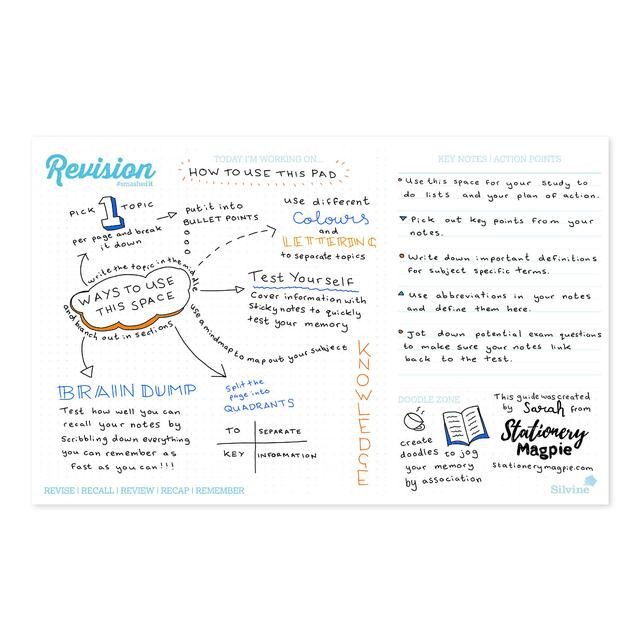 Revision
#smashedit
TODAY I'M WORKING ON...
HOW TO USE THIS PAD
PICK 1 TOPIC
per page and break
it down
put it into
BULLET POINTS
use different
Colours
and
LETTERING
to separate topics
write the topic in the middle
WAYS TO USE
THIS SPACE
and branch out in sections
Test Yourself
Cover information with
Sticky notes to quickly
test your memory
use a mindmap to map out your subject
KNOWLEDGE
BRAIN DUMP
Test how well you can
recall your notes by
Scribbling down everything
you can remember as
fast as you can!!!
Split the
page into
QUADRANTS
TO SEPARATE
KEY INFORMATION
REVISE | RECALL | REVIEW | RECAP | REMEMBER
KEY NOTES | ACTION POINTS
Use this space for your study to
do lists and your plan of action.
Pick out key points from your
notes.
Write down important definitions
for subject specific terms.
Use abbreviations in your notes
and define them here.
Jot down potential exam questions
to make sure your notes link
back to the test.
DOODLE ZONE
create
doodles to jog
your memory
by association
This guide was created
by Sarah from
Stationery
Magpie
stationerymagpie.com
Silvine